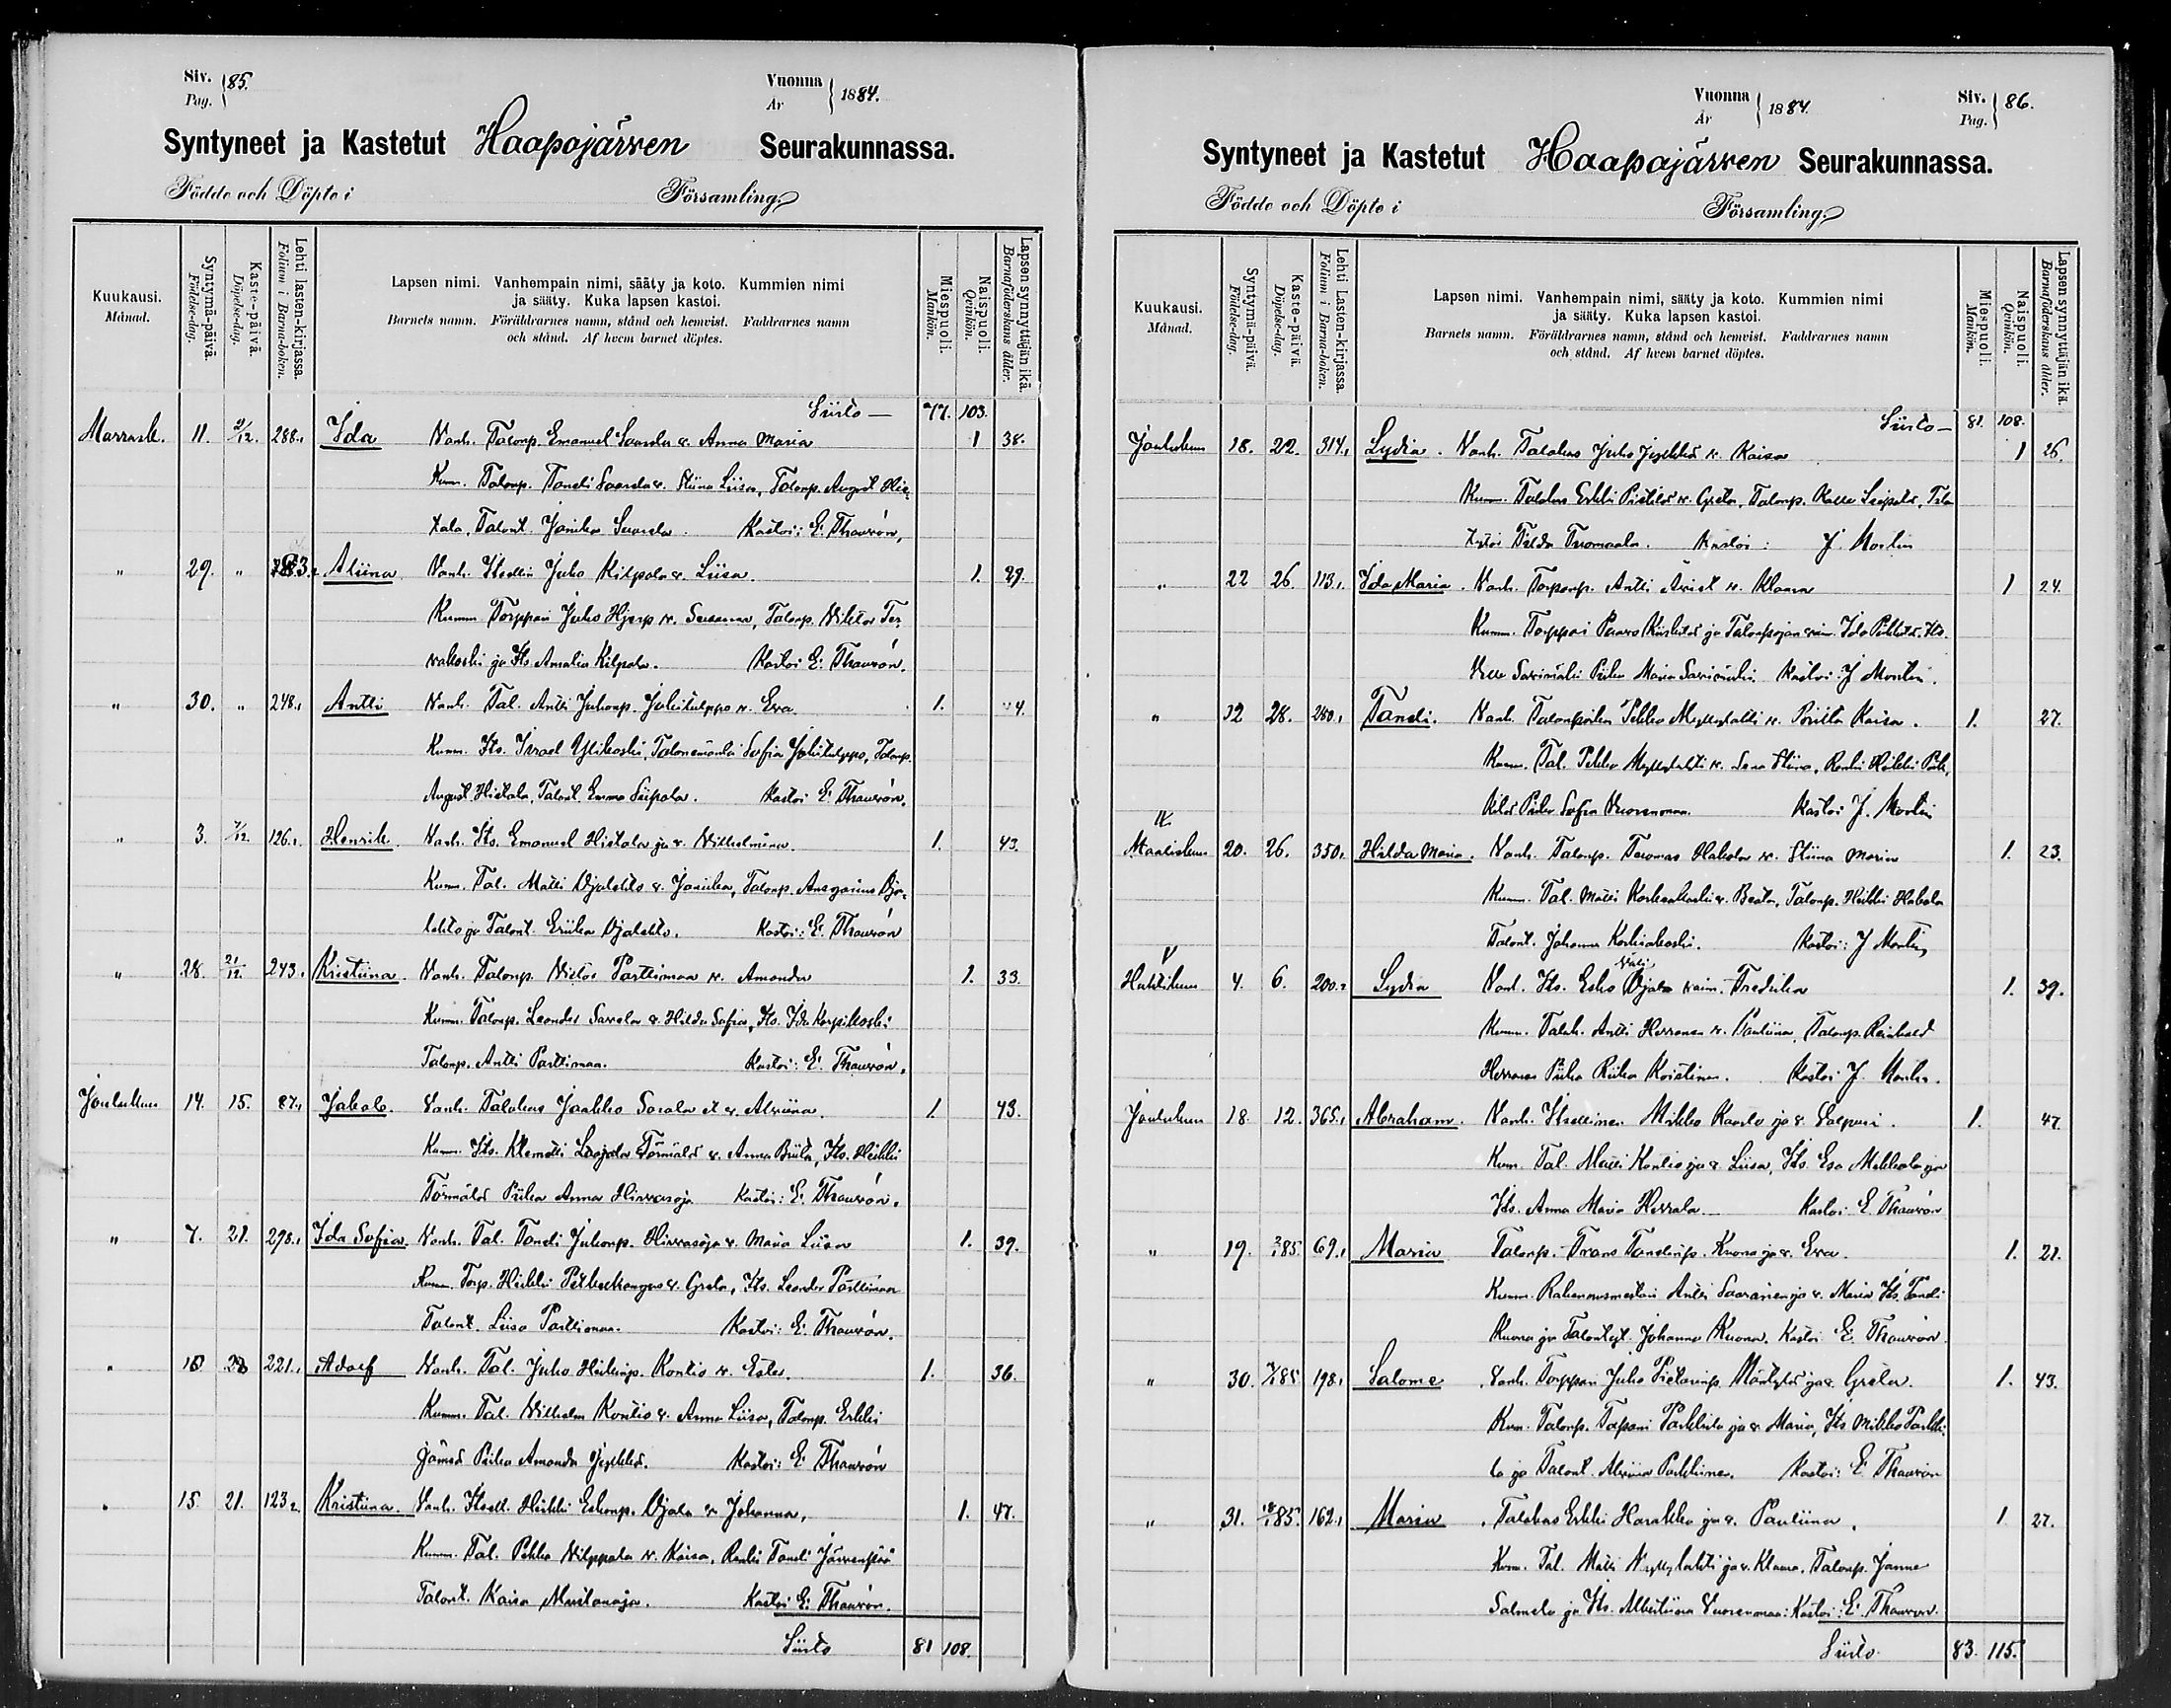 Siv. 85.
Pag.
Vuonna 1884.
År
Syntyneet ja Kastetut Haapajärven Seurakunnassa.
Födde och Döpte i Församling.
Kuukausi.
Månad.
Syntymä-päivä.
Födelse-dag.
Kaste-päivä.
Döpelse-dag.
Lehti lasten-kirjassa.
Folium i Barna-boken.
Lapsen nimi. Vanhempain nimi, sääty ja koto. Kummien nimi
ja sääty. Kuka lapsen kastoi.
Barnets namn. Föräldrarnes namn, stånd och hemvist. Faddrarnes namn
och stånd. Af hvem barnet döptes.
Miespuoli.
Mankön.
Naispuoli.
Qvinkön.
Lapsen synnyttäjän ikä.
Barnaföderskans ålder.
Siirto — 77. 103.
Marrask. 11. 2/12. 288.1 Ida Vanh. Talonp. Emanuel Saarela v. Anna Maria 1 38.
Kumm. Talonp. Taneli Saarela v. Stiina Liisa, Talonp. August Hie-
tala, Talont. Janika Saarela. Kastoi: E. Thauvón,
" 29. " Aliina Vanh. Itsellin Juho Kilpala v. Liisa. 1. 29.
Kumm Torppari Juho Hjerp v. Susanna, Talonp. Viktor Ter-
vakoski ja Its. Amalia Kilpala. Kastoi E. Thauvón.
" 30. " 248.1 Antti Vanh. Tal. Antti Juhonp. Jylitulppo v. Eva. 1.
Kumm. Its. Israel Ylikoski, Talonemäntä Sofia Jylitulppo, Talonp.
August Hietala, Talont. Emma Siipola. Kastoi E. Thauvón.
" 3. 7/12. 126.1 Henrik. Vanh. Its. Emanuel Hietala ja v. Vilhelmiina. 1. 43.
Kumm. Tal. Matti Ojalehto v. Janika, Talonp. Ansgarius Oja-
lehto ja Talont. Eriika Ojalehto. Kastoi: E. Thauvón
" 28. 21/12. 243.1 Kristiina. Vanh. Talonp. Victor Parttimaa v. Amanda 1. 33.
Kumm. Talonp. Leander Savela v. Hilda Sofia, Its. Ida Karpikoski
Talonp. Antti Parttimaa. Kastoi: E. Thauvón.
Joulukuu 14. 15. 87.1 Jakob. Vanh. Talokas Jaakko v. Alviina. 1. 43.
Kumm. Its. Klemetti Törmälä v. Anna Briita, Its. Heikki
Törmälä Piika Anna Hirvasoja Kastoi: E. Thauvón.
" 7. 21. 298.1 Ida Sofia. Vanh. Tal. Taneli Juhonp. Hirvasoja v. Maria Liisa 1. 39.
Kumm. Torp. Heikki Petkaikangas v. Greta, Its. Leander Parttimaa
Talont. Liisa Parttimaa. Kastoi: E. Thauvón.
" 221.1 Adolf Vanh. Tal. Juho Heikinp. Kontio v. Ester. 1. 36.
Kumm. Tal. Vilhelm Kontio v. Anna Liisa, Talonp. Erkki
Jämsä Piika Amanda Jyrkkä. Kastoi: E. Thauvón
" 15. 21. 123.2. Kristiina. Vanh. Itsell. Heikki Eskonp. Ojala v. Johanna, 1. 47.
Kumm. Tal. Pekka Vilppola v. Kaisa, Renki Taneli Järvenpää
Talont. Kaisa Mustanoja. Kastoi E. Thauvón.
Siirto 81 108.
Vuonna 1884.
År
Siv. 86.
Pag.
Syntyneet ja Kastetut Haapajärven Seurakunnassa.
Födde och Döpte i Församling.
Kuukausi.
Månad.
Syntymä-päivä.
Födelse-dag.
Kaste-päivä.
Döpelse-dag.
Lehti Lasten-kirjassa.
Folium i Barna-boken.
Lapsen nimi. Vanhempain nimi, sääty ja koto. Kummien nimi
ja sääty. Kuka lapsen kastoi.
Barnets namn. Föräldrarnes namn, stånd och hemvist. Faddrarnes namn
och stånd. Af hvem barnet döptes.
Miespuoli.
Mankön.
Naispuoli.
Qvinkön.
Lapsen synnyttäjän ikä.
Barnaföderskans ålder.
Siirto — 81. 108.
Joulukuu 18. 22. 314.1 Lydia. Vanh. Talokas Juho Jyrkkä v. Kaisa 1 26.
Kumm. Talokas Erkki Pietilä v. Greta, Talonp. Kalle Siipola, Talon
tytär Tilda Tuomaala. Kastoi: J. Montin
" 22 26. 113.1. Ida Maria. Vanh. Torpanp. Antti v. Klaara 1 24.
Kumm. Torppari Paavo Kiiskilä ja Talonpojan vaim. Ida Pihkala. Its.
Kalle Savimäki Piika Maria Savimäki. Kastoi: J Montin.
" 32 28. 280.1 Taneli. Vanh. Talonpoika Pekka Myllylahti v. Briitta Kaisa. 1. 27.
Kumm. Tal. Pekka Myllylahti v. Stiina, Renki Heikki
Piika Sofia Vuorenmaa. Kastoi J. Montin
IX.
Maaliskuu 20. 26. 350.1 Hilda Maria. Vanh. Talonp. Tuomas Hakala v. Stiina Maria 1. 23.
Kumm. Tal. Matti Korkiakoski v. Beata, Talonp. Heikki Hakala
Talont. Johanna Korkiakoski. Kastoi: J Montin
V
Huhtikuu 4. 6. 200.2 Lydia Vanh. Its. Esko Väli Ojala vaim. Fredrika 1. 39.
Kumm. Talok. Antti Herranen v. Pauliina, Talonp. Reinhold
Herranen Piika Riika Koistinen. Kastoi J. Montin.
Jouluhuu 18. 12. 365.1 Abraham. Vanh. Itsellinen Mikko Kaarlo ja v. Valpuri. 1. 47
Kum. Tal. Matti Kontio ja v. Liisa, Its. Esa Mehtala ja
Its. Anna Maria Herrala. Kastoi E. Thauvón
" 19. 3/1 85. 69.1 Maria Talonp. Frans Tanelinp. Kuona ja v. Eva. 1. 21.
Kumm. Rakennusmestari Antti Saarinen ja v. Maria Its. Taneli
Kuona ja Talontyt. Johanna Kuona. Kastoi E. Thauvón.
" 30. 7/1 85 198.1 Salome. Vanh. Torppari Juho Pietarinp. Mäntylä ja v. Greta. 1. 43.
Kum. Talonp. Tapani Parkkila ja v. Maria, Its Mikko Parkki-
la ja Talont. Alviina Parkkinen. Kastoi: E. Thauvón
" 31. 18/1 85. 162.1 Maria. Talokas Erkki Harakka ja v. Pauliina. 1 27.
Kum. Tal. Matti Myllylahti ja v. Klaara, Talonp. Janne
Salmela ja Its. Albertiina Vuorenmaa: Kastoi: E. Thauvón.
Siirto. 83. 115.